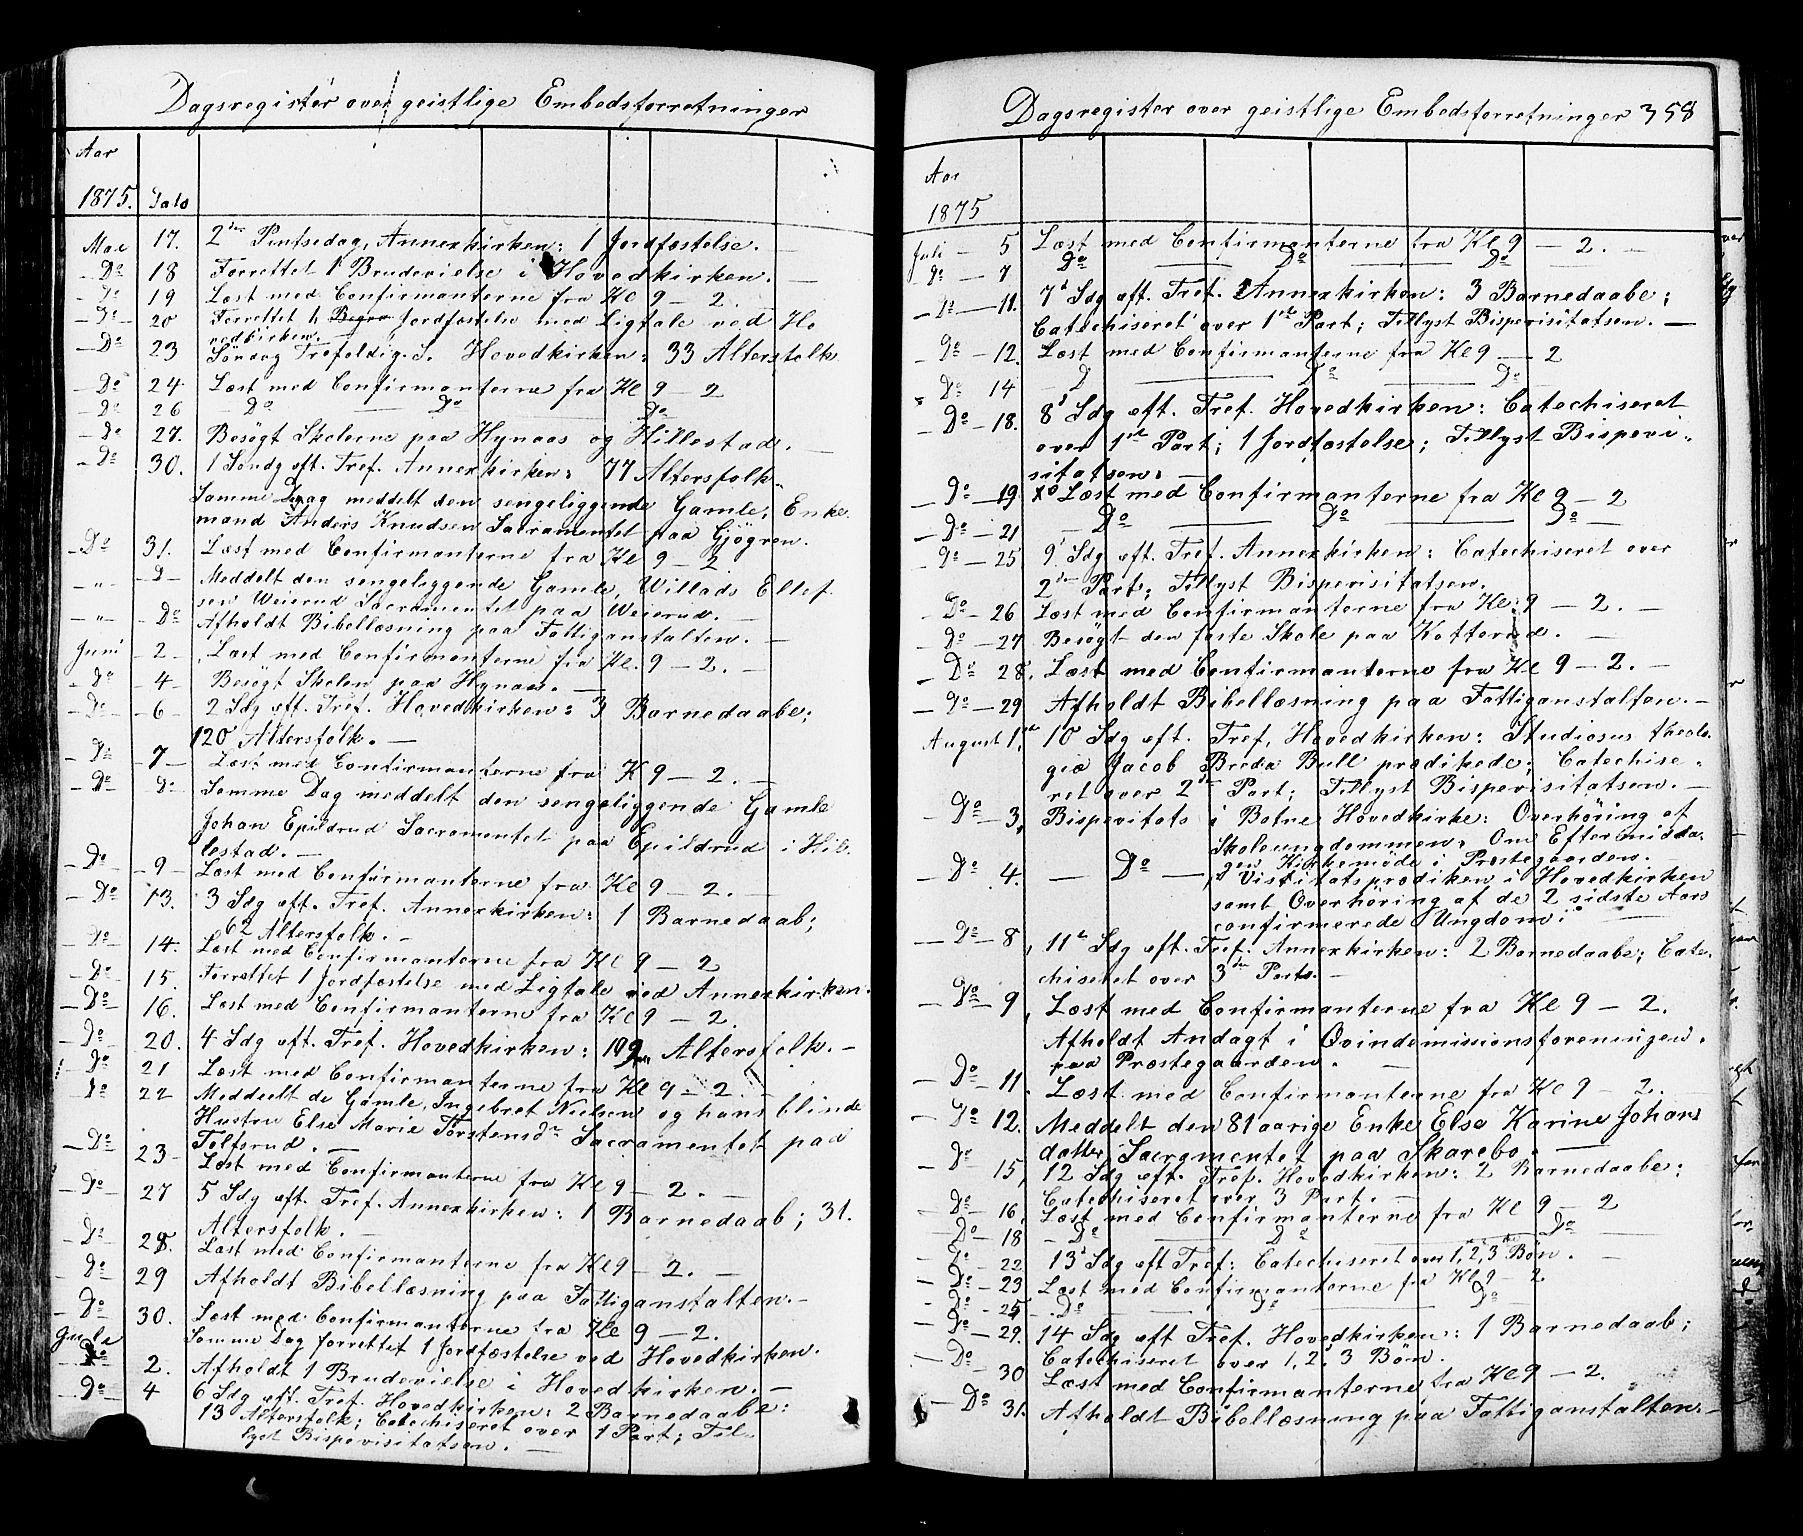 Dagsregister over geistlige Embedsforretninger
Aar
1875. Dato
Mai 17. 2den Pintsedag, Annexkirken: 1 Jordfæstelse.
Do 18 Forrettet 1 Brudevielse i Hovedkirken. —
Do 19 Læst med Confirmanterne fra Kl 9 — 2.
Do 20 Forrettet 1 Jordfæstelse med Ligtale ved Ho
vedkirken. —
Do 23 Søndag Trefoldig. S. Hovedkirken: 33 Altersfolk
Do 24 Læst med Confirmanterne fra Kl 9 — 2
Do 26 Do — Do — Do
Do 27. Besøgt Skolerne paa Hynaas og Hillestad. —
Do 30. 1 Søndg eft. Tref. Annexkirken: 77 Altersfolk.
Samme Dag meddelt den sengeliggende Gamle, Enke-
mand Anders Knudsen Sacramentet paa Gjøgren.
Do 31. Læst med Confirmanterne fra Kl 9 — 2
— " — D — Meddelt den sengeliggende Gamle, Willads Ellef
sen Weierud Sacramentet paa Weierud. —
— " — Do Afholdt Bibellæsning paa Fattiganstalten. —
Juni — 2 — Læst med Confirmanterne fra Kl. 9 — 2. —
Do — 4 — Besøgt Skolen paa Hynaas. —
Do — 6 — 2 Sdg eft. Tref. Hovedkirken: 3 Barnedaabe;
120 Altersfolk. —
Do — 7 — Læst med Confirmanterne fra K 9 — 2. —
Do Do Samme Dag meddelt den sengeliggende Gamle
Johan Epildrud Sacramentet paa Epildrud i Hil-
lestad. —
Do — 9 — Læst med Confirmanterne fra Kl 9 — 2. —
Do 13. 3 Sdg eft. Tref. Annexkirken: 1 Barnedaab;
62 Altersfolk. —
Do 14. Læst med Confirmanterne fra Kl 9 — 2
Do 15. Forrettet 1 Jordfæstelse med Ligtale ved Annexkirken.
Do 16. Læst med Confirmanterne fra Kl 9 — 2.
Do 20. 4 Sdg eft. Tref. Hovedkirken: Altersfolk. —
Do 21 Læst med Confirmanterne fra Kl 9 — 2. —
Do 22 Meddeelt de Gamle, Ingebret Nielsen og hans blinde
Hustru Else Marie Torstensdr Sacramentet paa
Tolfsrud. —
Do 23 — Læst med Confirmanterne fra Kl 9 — 2. —
Do 27 5 Sdg eft. Tref. Annexkirken: 1 Barnedaab; 31.
Altersfolk. —
Do 28. Læst med Confirmanterne fra Kl 9 — 2. —
Do 29 Afholdt Bibellæsning paa Fattiganstalten. —
Do 30. Læst med Confirmanterne fra Kl 9 — 2.
Samme Dag forrettet 1 Jordfæstelse ved Hovedkirken.
Do 2. Afholdt 1 Brudevielse i Hovedkirken. —
Do 4 6 Sdg eft. Tref. Hovedkirken: 2 Barnedaabe:
13 Altersfolk; Catechiseret over 1 Part; Til-
lyst Bispevisitatsen. —
Dagsregister over geistlige Embedsforretninger 358
Aar
1875
Juli — 5 Læst med Confirmanterne fra Kl 9 — 2. —
Do — 7 Do — Do — Do
Do — 11. 7' Sdg eft. Tref. Annexkirken: 3 Barnedaabe;
Catechiseret over 1ste Part; Tillyst Bispevisitatsen. —
Do — 12. Læst med Confirmanterne fra Kl 9 — 2
Do 14 D — Do — Do
Do — 18. 8' Sdg eft. Tref. Hovedkirken: Catechiseret
over 1ste Part; 1 Jordfæstelse; Tillyst Bispevi-
sitatsen. —
Do — 19. Læst med Confirmanterne fra Kl 9 — 2
Do — 21 — Do — Do — Do —
Do — 25 9' Sdg eft. Tref. Annexkirken: Catechiseret over
2den Part; Tillyst Bispevisitatsen.
Do — 26 Læst med Confirmanterne fra Kl. 9 — 2. —
Do — 27 Besøgt den faste Skole paa Kotterød. —
Do 28. Læst med Confirmanterne fra Kl 9 — 2. —
Do — 29 Afholdt Bibellæsning paa Fattiganstalten. —
August 1ste 10 Sdg eft. Tref. Hovedkirken: Studiosus theolo-
giæ Jacob Breda Bull prædikede; Catechise-
ret over 2den Part; Tillyst Bispevisitatsen. —
Do — 3. Bispevitats i Botne Hovedkirke: Overhøring af
Skoleungdommen. Om Eftermidda-
gen Kirkemøde i Præstegaarden. —
Do 4. — Do — Visitatsprædiken i Hovedkirken
samt Overhøring af de 2 sidste Aars
confirmerede Ungdom. —
Do — 8, 11te Sdg eft. Tref. Annexkirken: 2 Barnedaabe; Cate-
chiseret over 3die Part. —
Do — 9, Læst med Confirmanterne fra Kl 9 — 2.
Afholdt Andagt i Qvindemissionsforeningen.
paa Præstegaarden. —
Do — 11. Læst med Confirmanterne fra Kl 9 — 2.
Do 12. Meddelt den 81 aarige Enke Else Karine Johans
datter Sacramentet paa Skarebo. —
Do 15, 12 Sdg eft. Tref. Hovedkirken: 2 Barnedaabe:
Catechiseret over 3 Part. —
Do 16, Læst med Confirmanterne fra Kl 9 — 2
Do — 18 — Do — Do — Do
Do — 22 13' Sdg eft Tref: Catechiseret over 1, 2, 3 die Bøn. —
Do — 23 Læst med Confirmanterne fra Kl 9 — 2.
Do — 25 — Do — Do — Do
Do — 29. 14 Sdg eft Tref. Hovedkirken: 1 Barnedaab;
Catechiseret over 1, 2, 3 Bøn.
Do 30 Læst med Confirmanterne fra Kl 9 — 2.
Do 31. Afholdt Bibellæsning paa Fattiganstalten. —